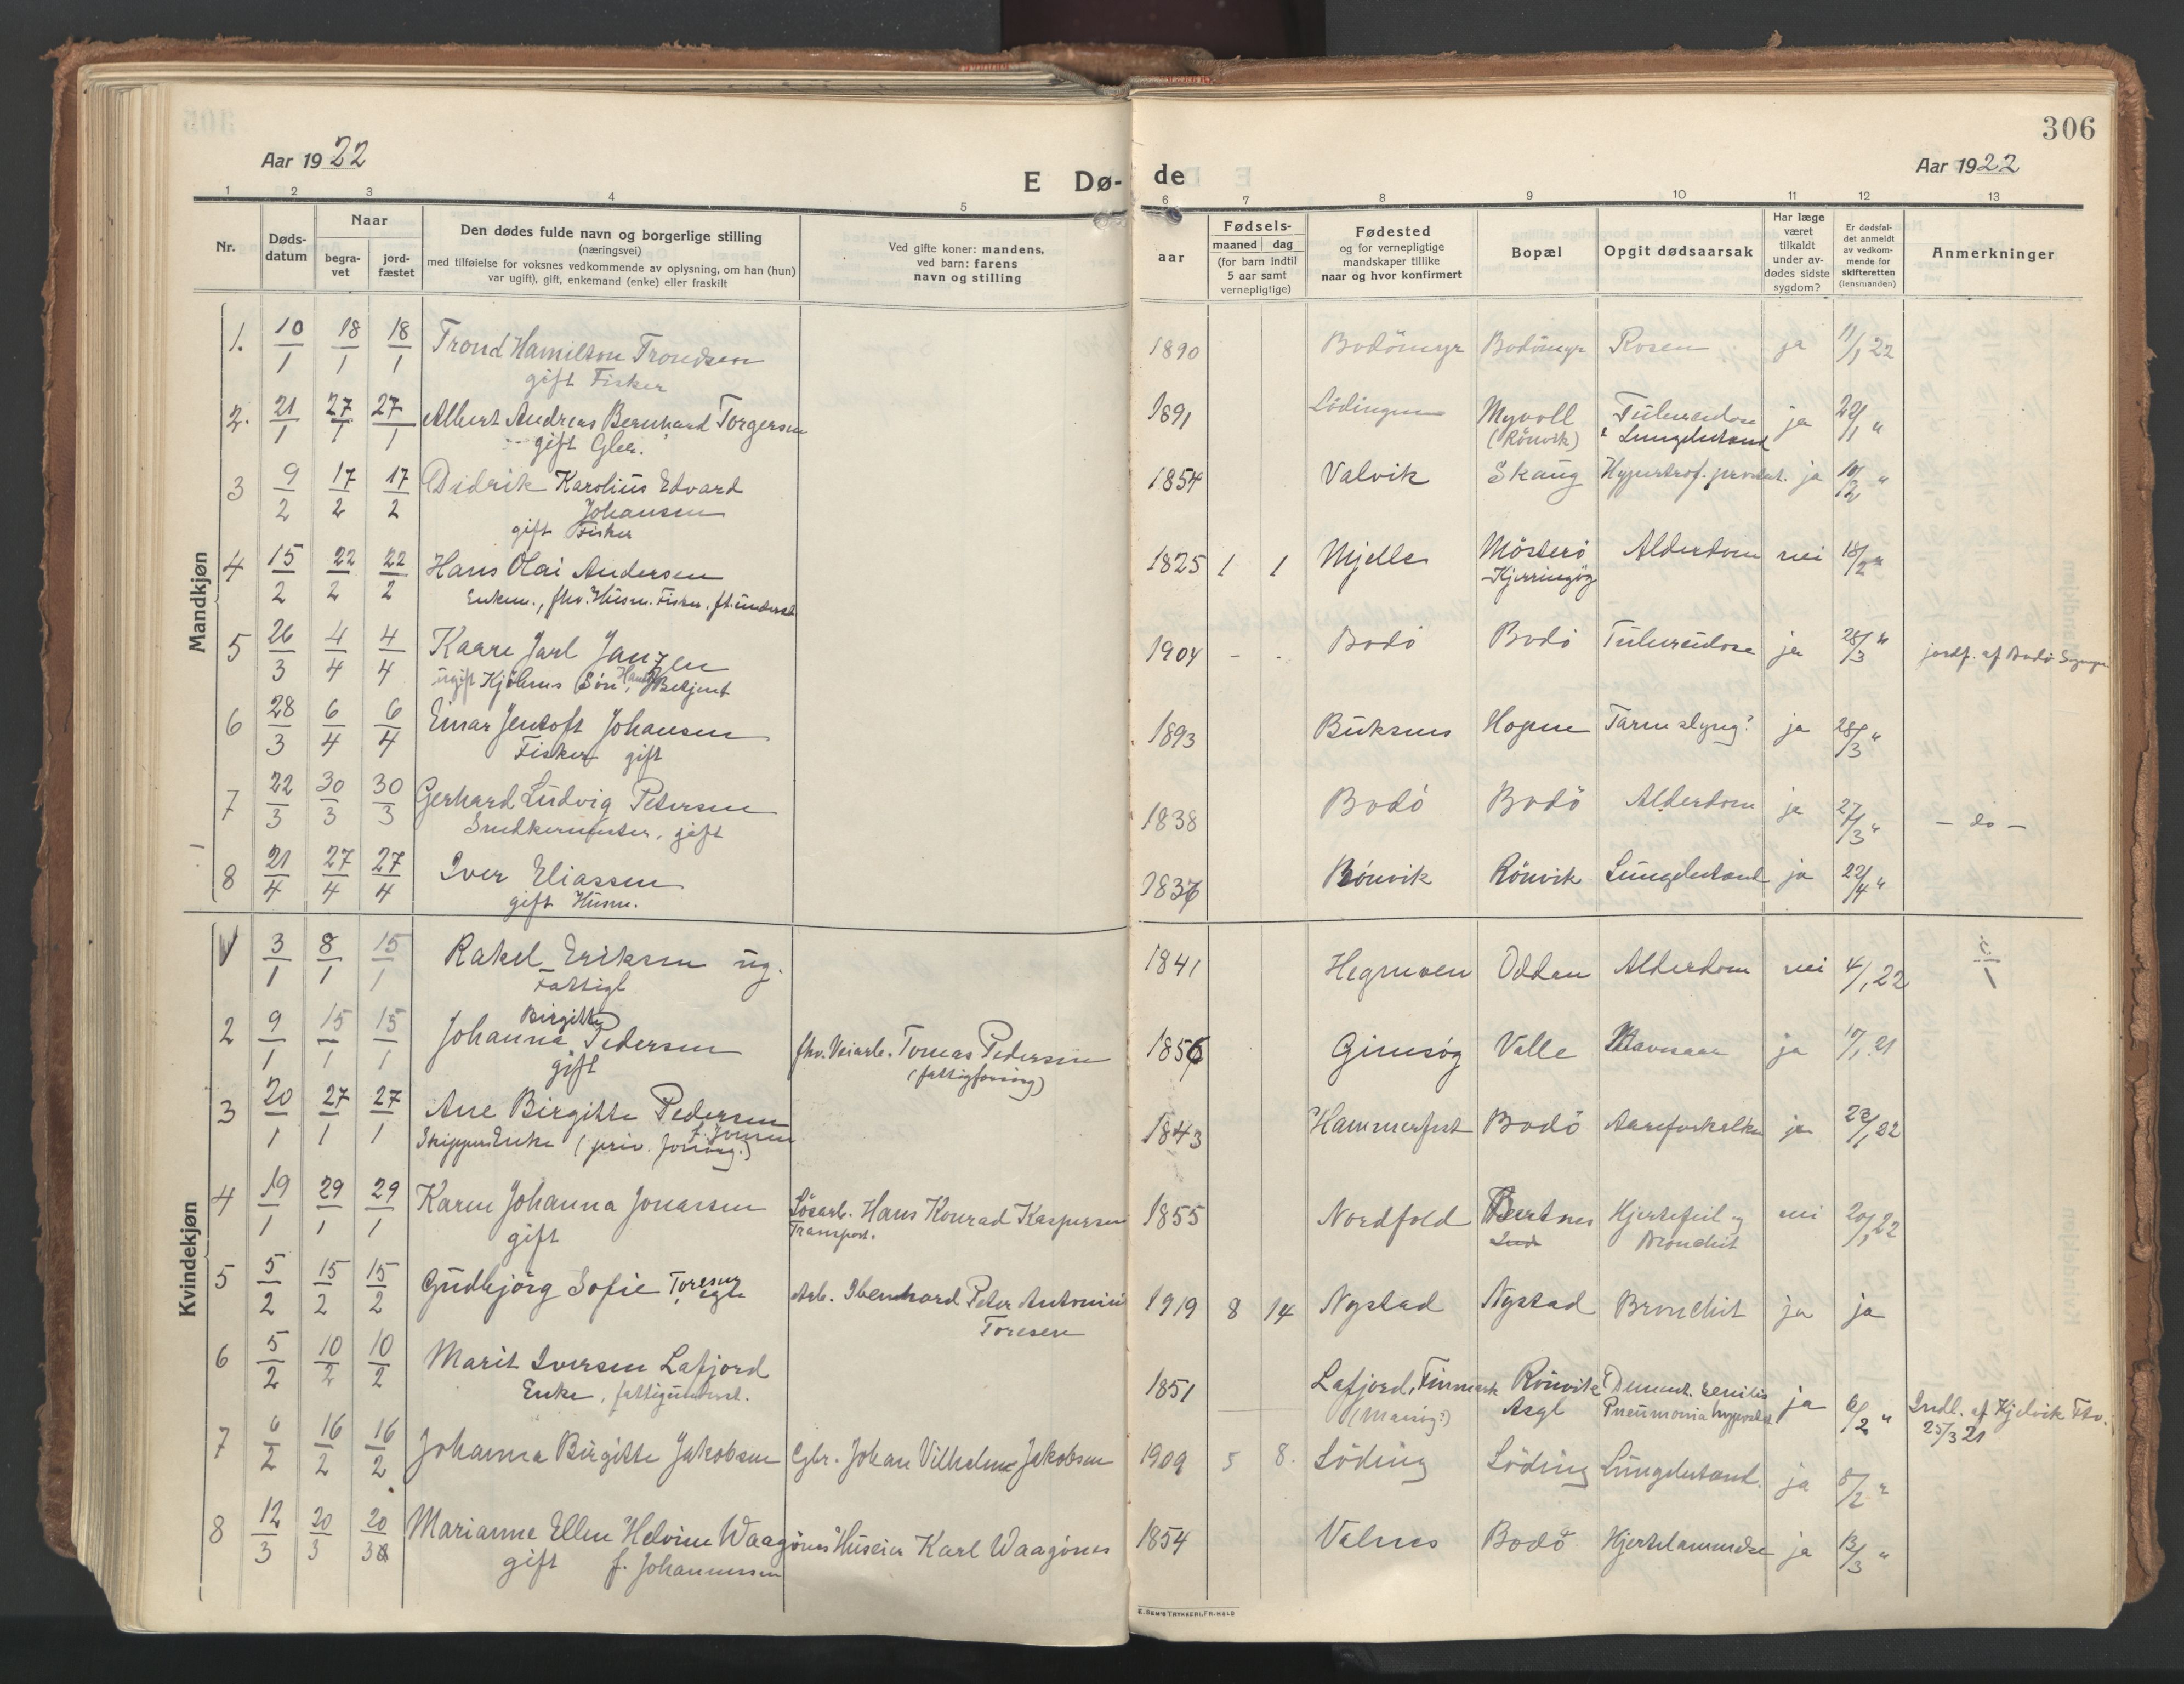 306
Aar 1922
E Dø-
de
Aar 1922
1 2 3 4 5 6 7 8 9 10 11 12 13
Nr.
Døds-
datum
Naar
begra-
vet
jord-
fæstet
Den dødes fulde navn og borgerlige stilling
(næringsvei)
med tilføielse for voksnes vedkommende av oplysning, om han (hun)
var ugift), gift, enkemand (enke) eller fraskilt
Ved gifte koner: mandens,
ved barn: farens
navn og stilling
aar
Fødsels-
maaned dag
(for barn indtil
5 aar samt
vernepligtige)
Fødested
og for vernepligtige
mandskaper tillike
naar og hvor konfirmert
Bopæl
Opgit dødsaarsak
Har læge
været
tilkaldt
under av-
dødes sidste
sygdom?
Er dødsfal-
det anmeldt
av vedkom-
mende for
skifteretten
(lensmanden)
Anmerkninger
Mandkjøn
1. 10/1 18/1 18/1 Trond Hamilton Trondsen 1890 Bodömyr Bodömyr Rosen ja 11/1 22
gift Fisker
2. 21/1 27/1 27/1 Albert Andreas Bernhard Torgersen 1891 Lödingen Myvoll Tuberculose ja 22/1 "
gift (Rönvik) Lungebetænd
3 9/2 17/2 17/2 Didrik Karolius Edvard 1854 Valvik Skaug Hypertrof. prostat. ja 10/2 "
Johansen
gift Fisker
4 15/2 22/2 22/2 Hans Olai Andersen 1825 1 1 Mjelle Mösterö Alderdom nei 18/2 "
Enkem., fhv. Husm. Fisker, ft. underst Kjerringög
5 26/3 4/4 4/4 Kaare Jarl Janzen 1904 - - Bodö Bodö Tuberculose ja 28/3 " jordf. af Bodö
ugift Kjöbms Sön, Betjent
6 28/3 6/4 6/4 Einar Jentoft Johansen 1893 Buksnes Hopen Tarmslyng? ja 28/3 "
Fisker gift
7 22/3 30/3 30/3 Gerhard Ludvig Petersen 1838 Bodö Bodö Alderdom ja 27/3 " - do -
Snedkermester, gift
8 21/4 27/4 27/4 Iver Eliassen 1837 Rönvik Rönvik Lungebetænd ja 22/4 "
gift Husm.
Kvindekjøn
1 3/1 8/1 15/1 Rakel Eriksen ug. 1841 Oddan Alderdom nei 4/1 22
Fattigl
2 9/1 15/1 15/1 Johanna Birgitte Pedersen fhv. Veiarb. Tomas Pedersen 1856 Gimsög Valle ja 10/1 21
gift (fattigforsörg)
3 20/1 27/1 27/1 Ane Birgitte Pedersen 1843 Hammerfest Bodö Aareforkalkn ja 23/1 22
Skippers Enke (priv. forsörg.) f. Jonsen
4 19/1 29/1 29/1 Karen Johanna Jonassen Lösarb. Hans Konrad Kaspersen 1855 Nordfold Bertnes Hjertefeil og nei 20/1 22
gift Transport. Bronchit
5 5/2 15/2 15/2 Gudbjörg Sofie Toresen Arb. Bernhard Peter Antonius 1919 8 14 Nystad Nystad Bronchit ja ja
Toresen
6 5/2 10/2 10/2 Marit Iversen Lafjord 1851 Lafjord, Finmark Rönvik Dement. senilis ja 6/2 " Indl. af Kjelvik Ftv.
Enke, fattigunderst. Asyl Pneumonia hypostat 25/3 21
7 6/2 16/2 16/2 Johanna Birgitte Jakobsen Gbr. Johan Vilhelm Jakobsen 1909 5 8. Löding Löding Lungebetænd. ja 8/2 "
8 12/3 20/3 20/3 Marianne Ellen Helvine Waagönes Huseier Karl Waagönes 1854 Valnes Bodö Hjertelammelse ja 13/3 "
gift f. Johannessen
E. SEM'S TRYKKERI, FR.HALD